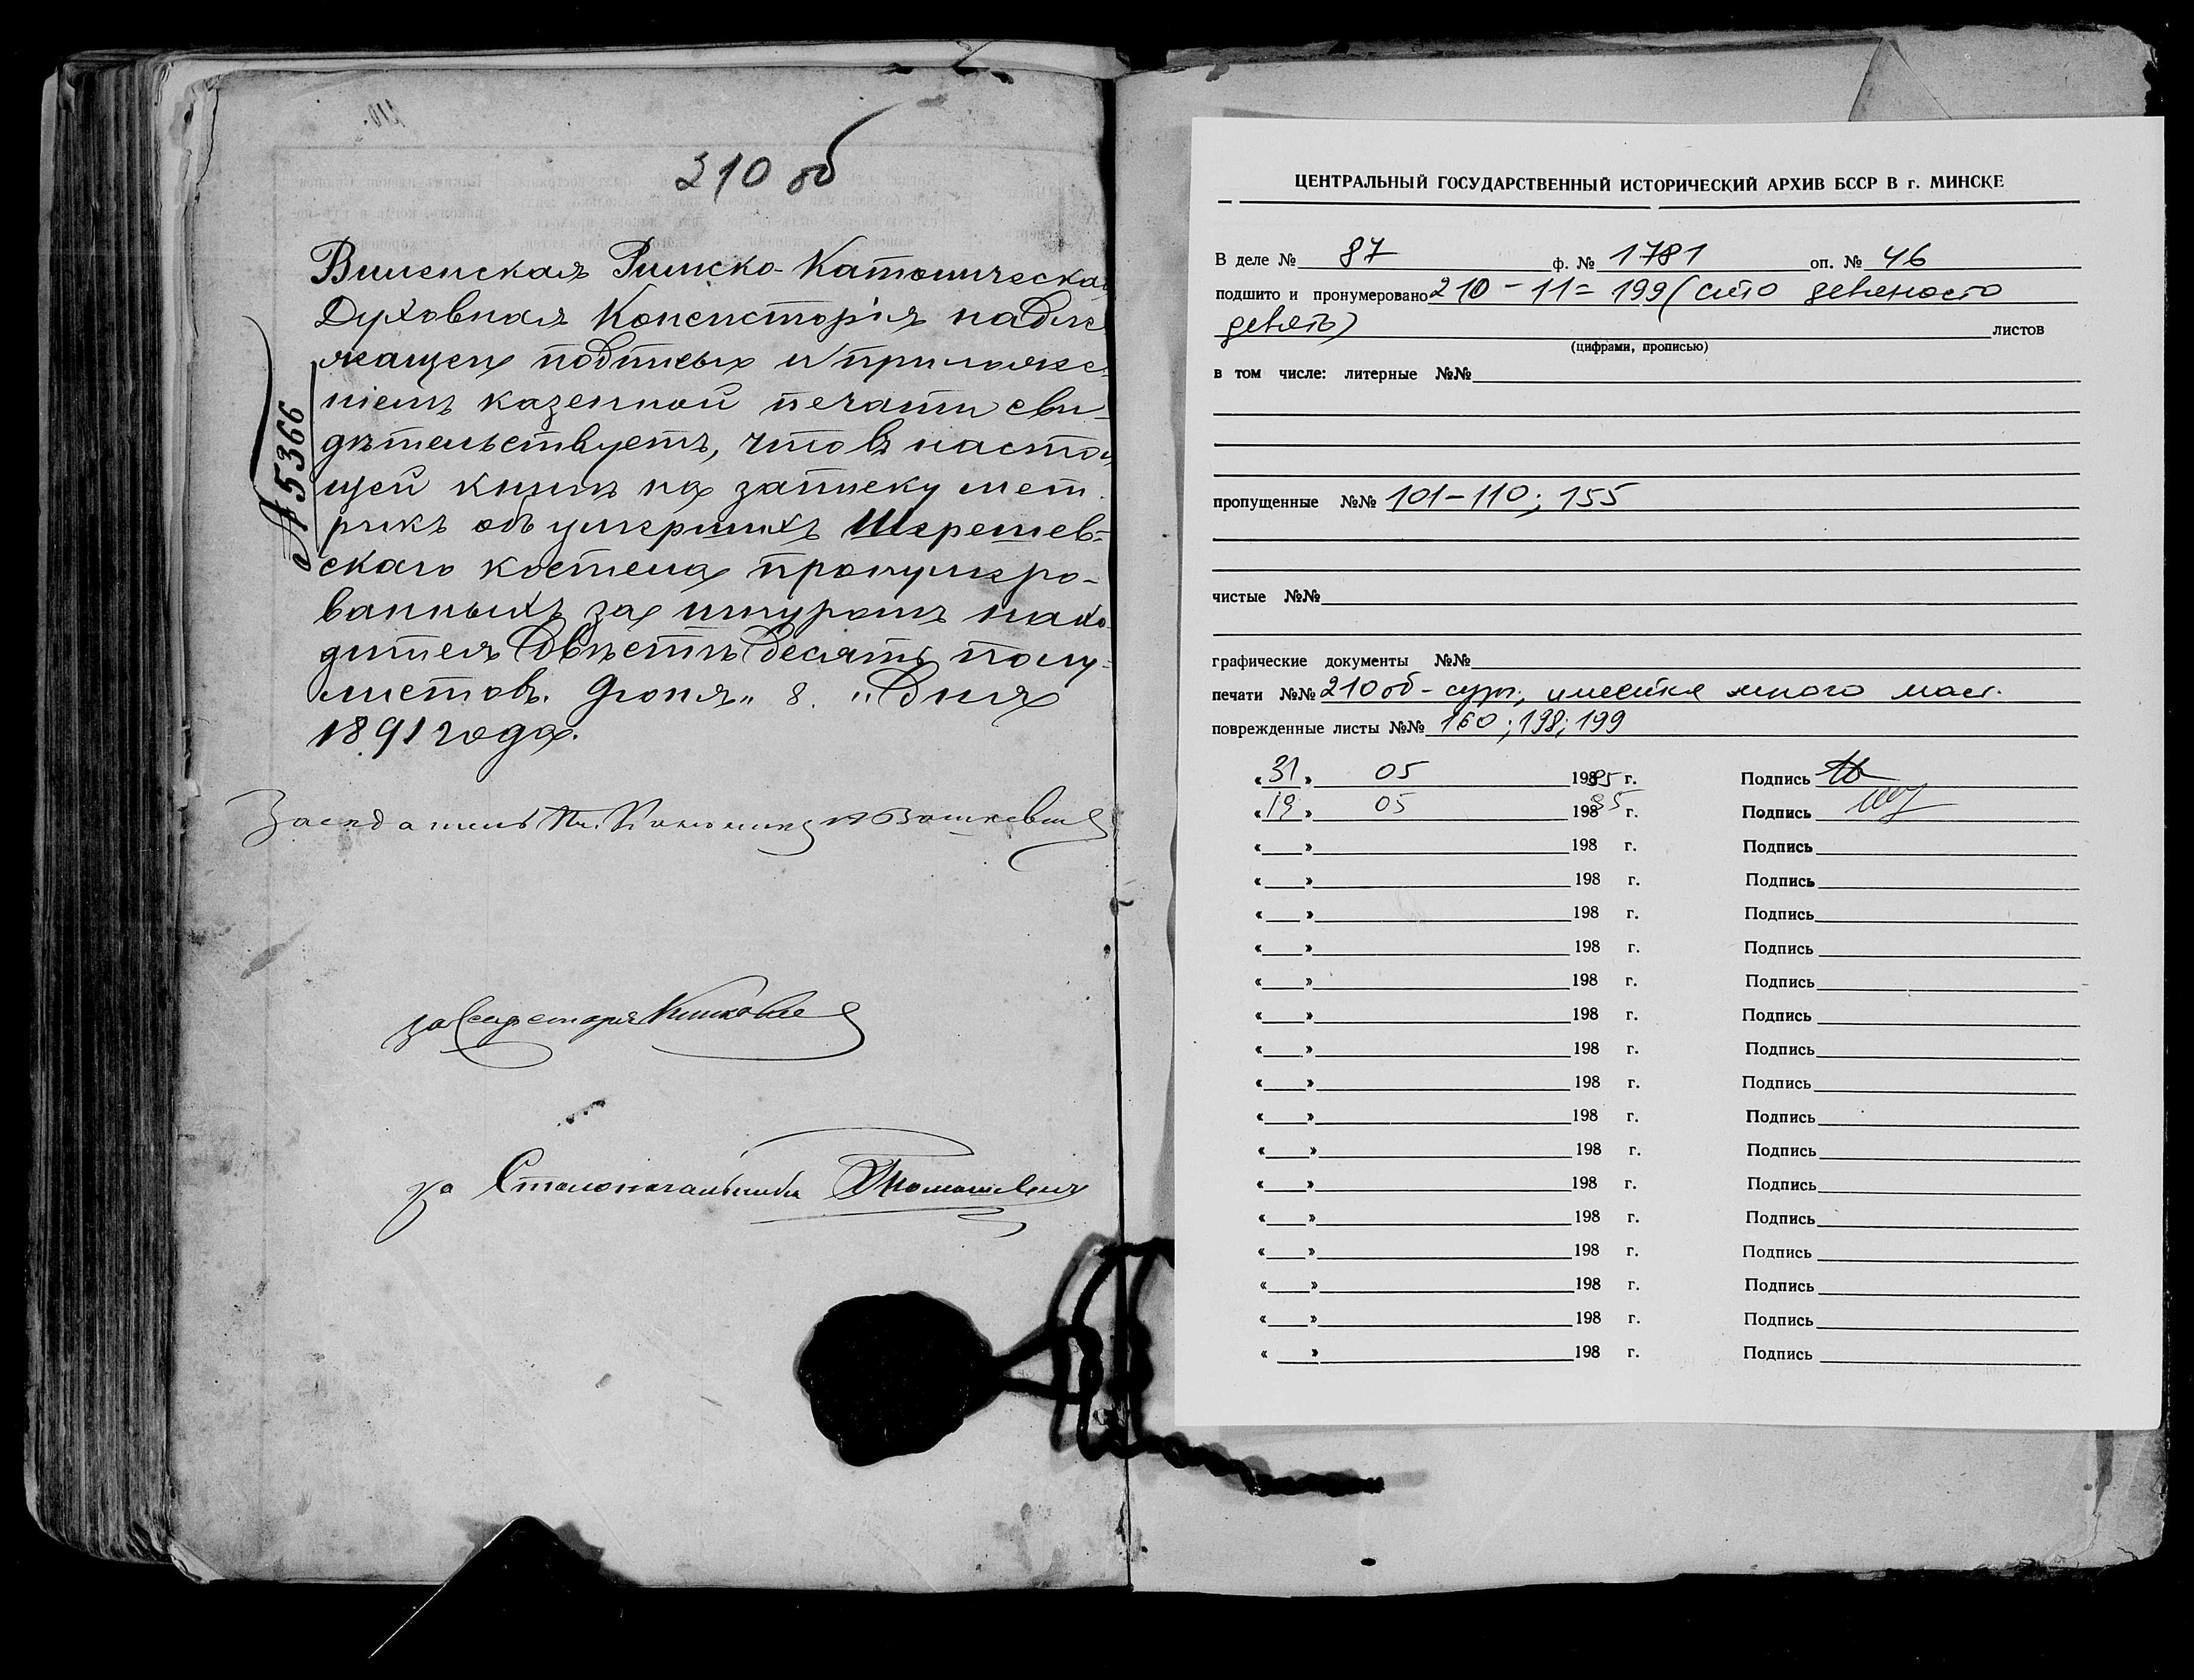 210 об
Виленская Римско-Католическая
Духовная Консисторія надле
жащею подписью и приложе-
ніемъ казенной печати сви-
дѣтельствуетъ, что въ настоя
щей книгѣ на записку мет-
рикъ объ умершихъ Шерешев-
скаго костела пронумеро-
ванныхъ за шнуромъ нахо-
дится двѣсти десять полу-
листовъ. Іюня „ 8. „ дня
1891 года.
№ 5366
Засѣдатель
за Секретаря
за Столоначальника
ЦЕНТРАЛЬНЫЙ ГОСУДАРСТВЕННЫЙ ИСТОРИЧЕСКИЙ АРХИВ БССР В г. МИНСКЕ
В деле № 87 ф. № 1781 оп. № 46
подшито и пронумеровано 210 - 11 = 199 (сто девяносто
девять) листов
(цифрами, прописью)
в том числе: литерные №№
пропущенные №№ 101-110; 155
чистые №№
графические документы №№
печати №№ 210 об - сург., имеется много маст.
поврежденные листы №№ 160; 198; 199
« 31 » 05 1985 г. Подпись
« 19 » 05 1985 г. Подпись
« » 198 г. Подпись
« » 198 г. Подпись
« » 198 г. Подпись
« » 198 г. Подпись
« » 198 г. Подпись
« » 198 г. Подпись
« » 198 г. Подпись
« » 198 г. Подпись
« » 198 г. Подпись
« » 198 г. Подпись
« » 198 г. Подпись
« » 198 г. Подпись
« » 198 г. Подпись
« » 198 г. Подпись
« » 198 г. Подпись
« » 198 г. Подпись